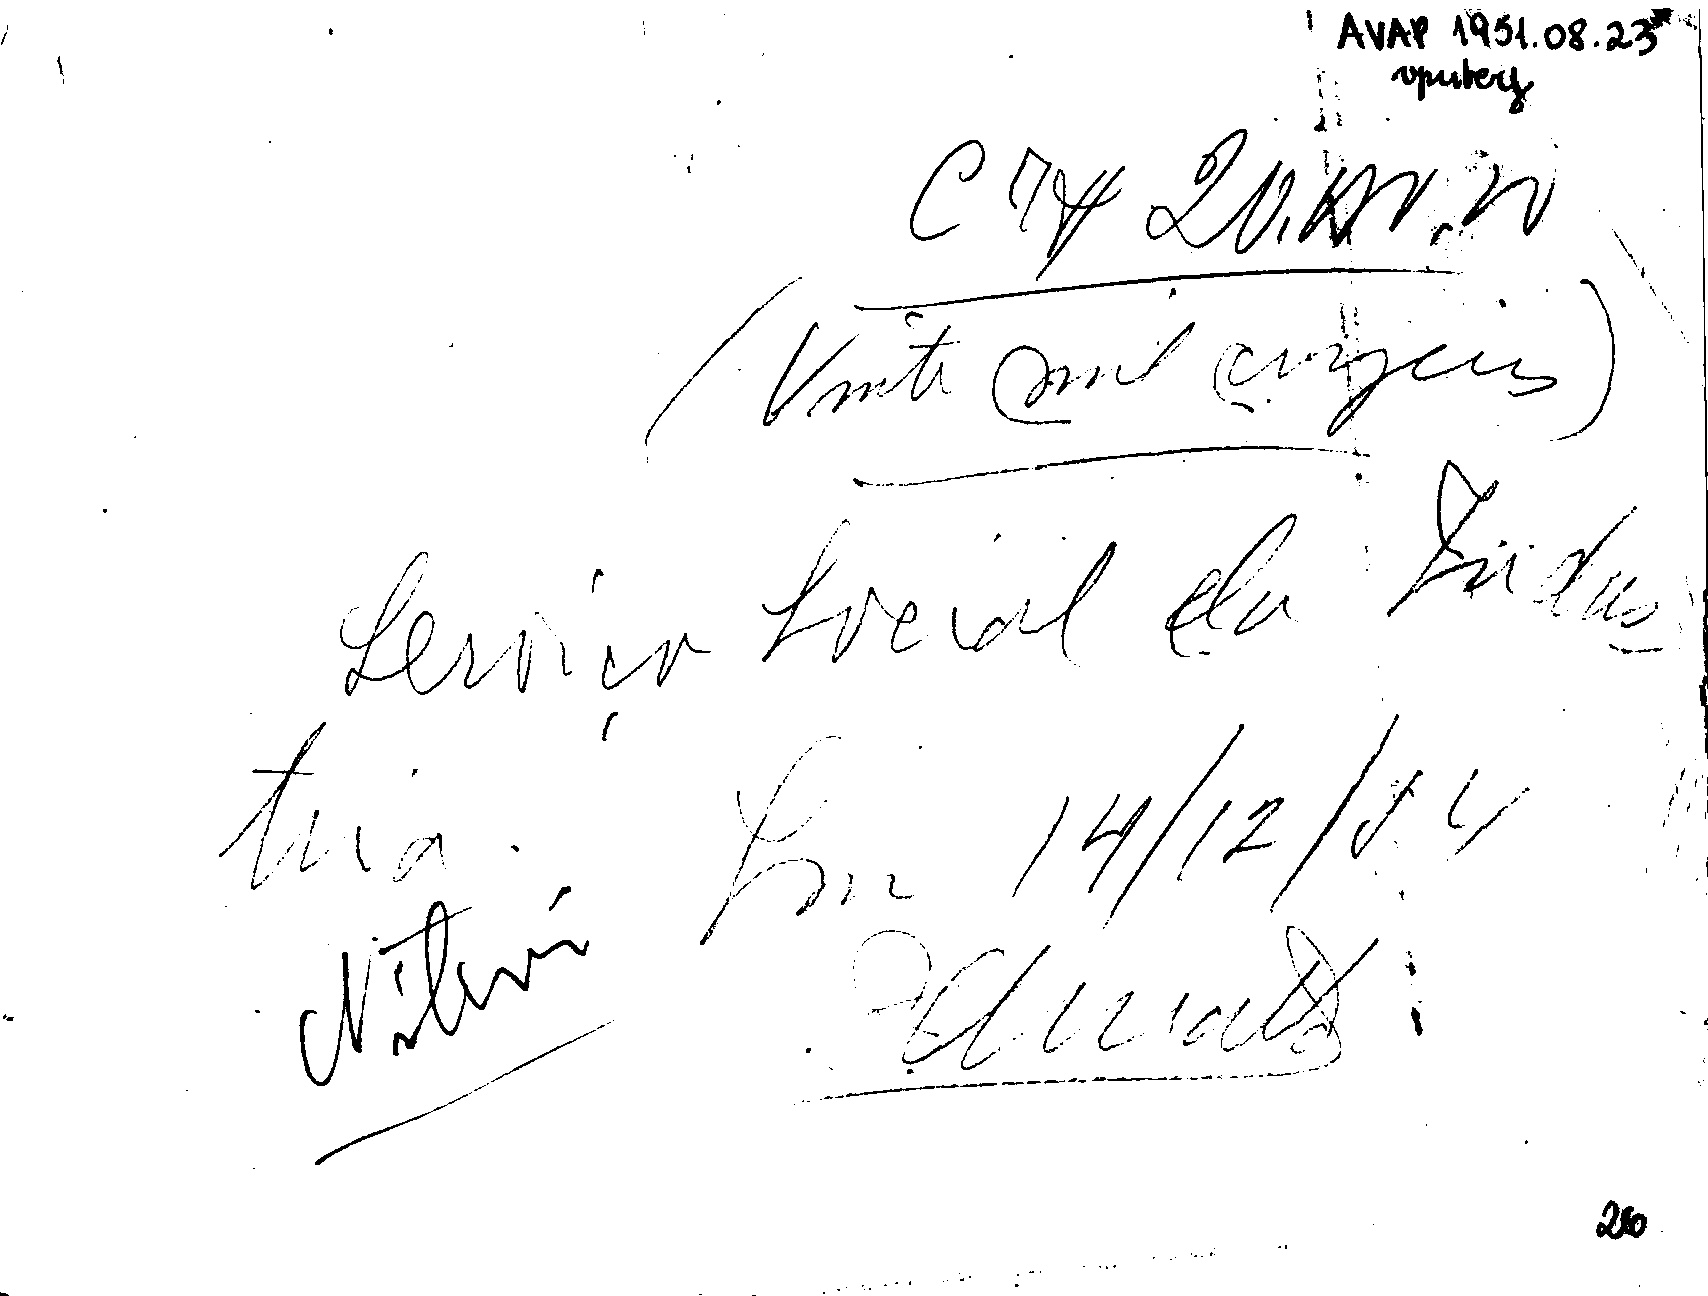 AVAP 1951.08.23
Cr$ 20.000.00
(Vinte mil cruzeiros)
Serviço Social da Indus
tria. Em 14/12/54
Niterói
26